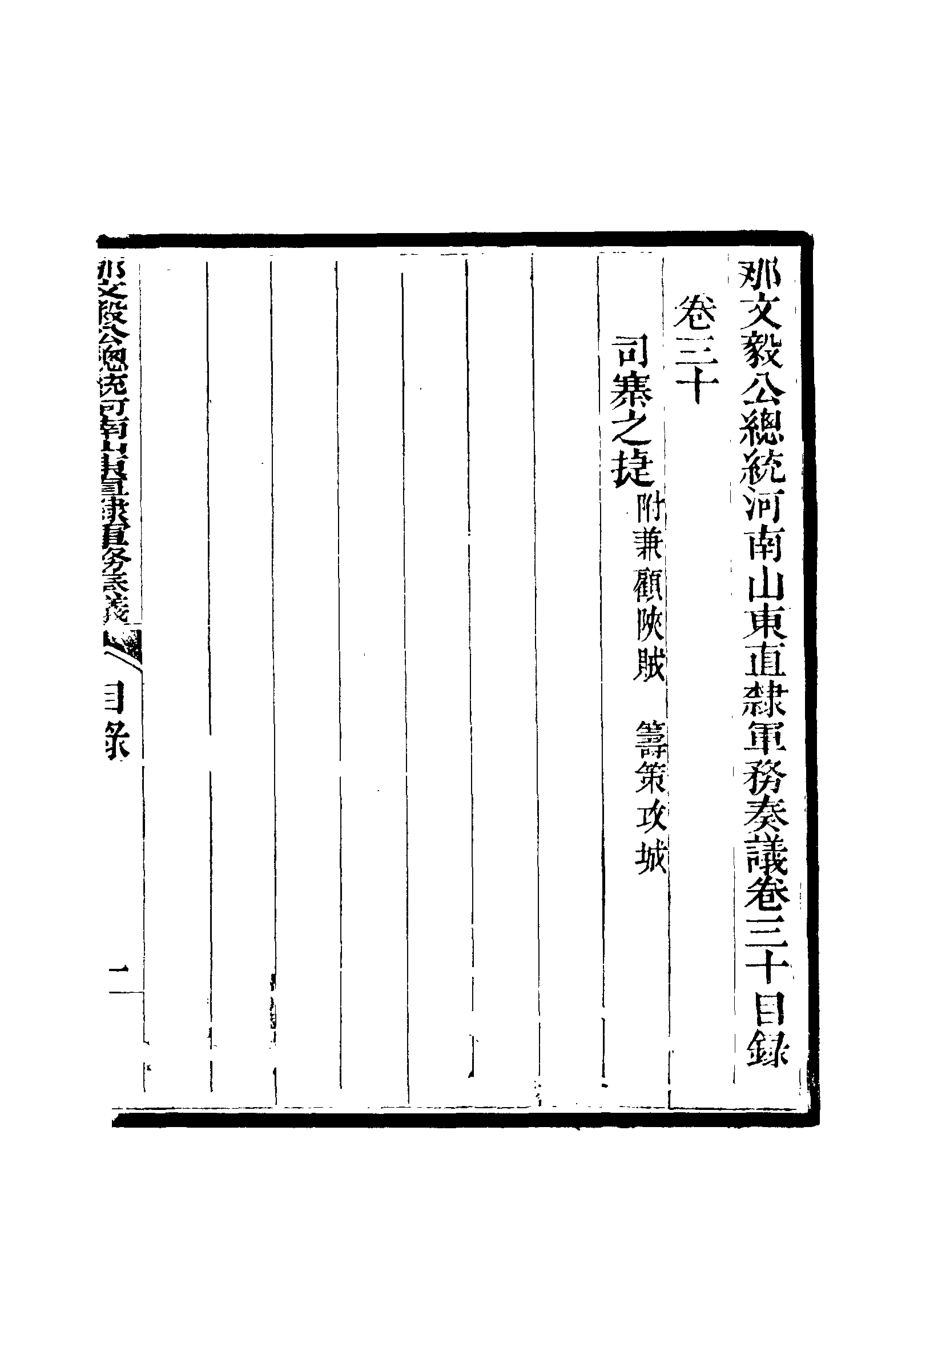 那文毅公總統河南山東直隸軍務奏議卷三十目錄
卷三十
司寨之捷 附兼顧陝賊 籌策攻城
那文毅公總統河南山東直隸軍務奏議 目錄 一